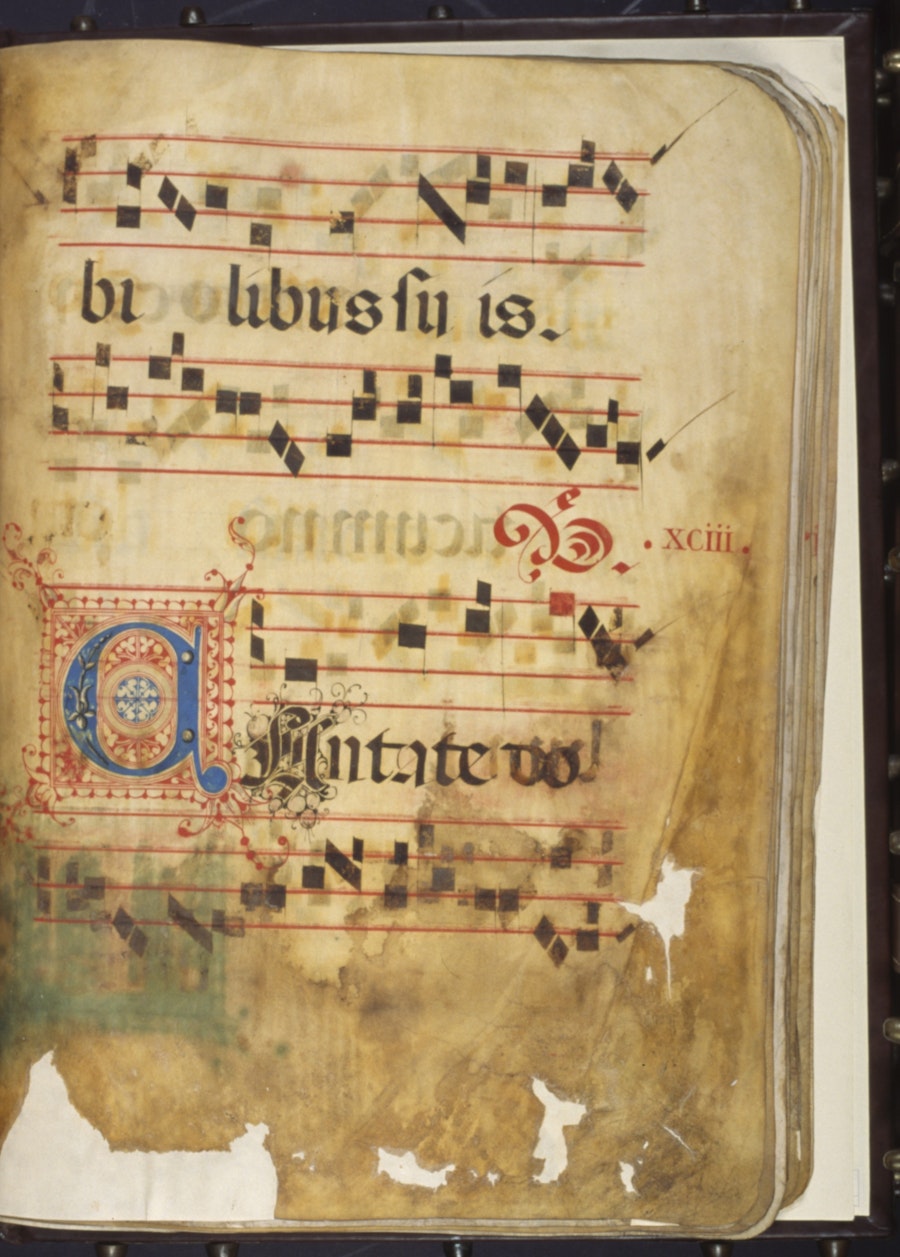 bi libus su is.
. xciii .
CAntate do